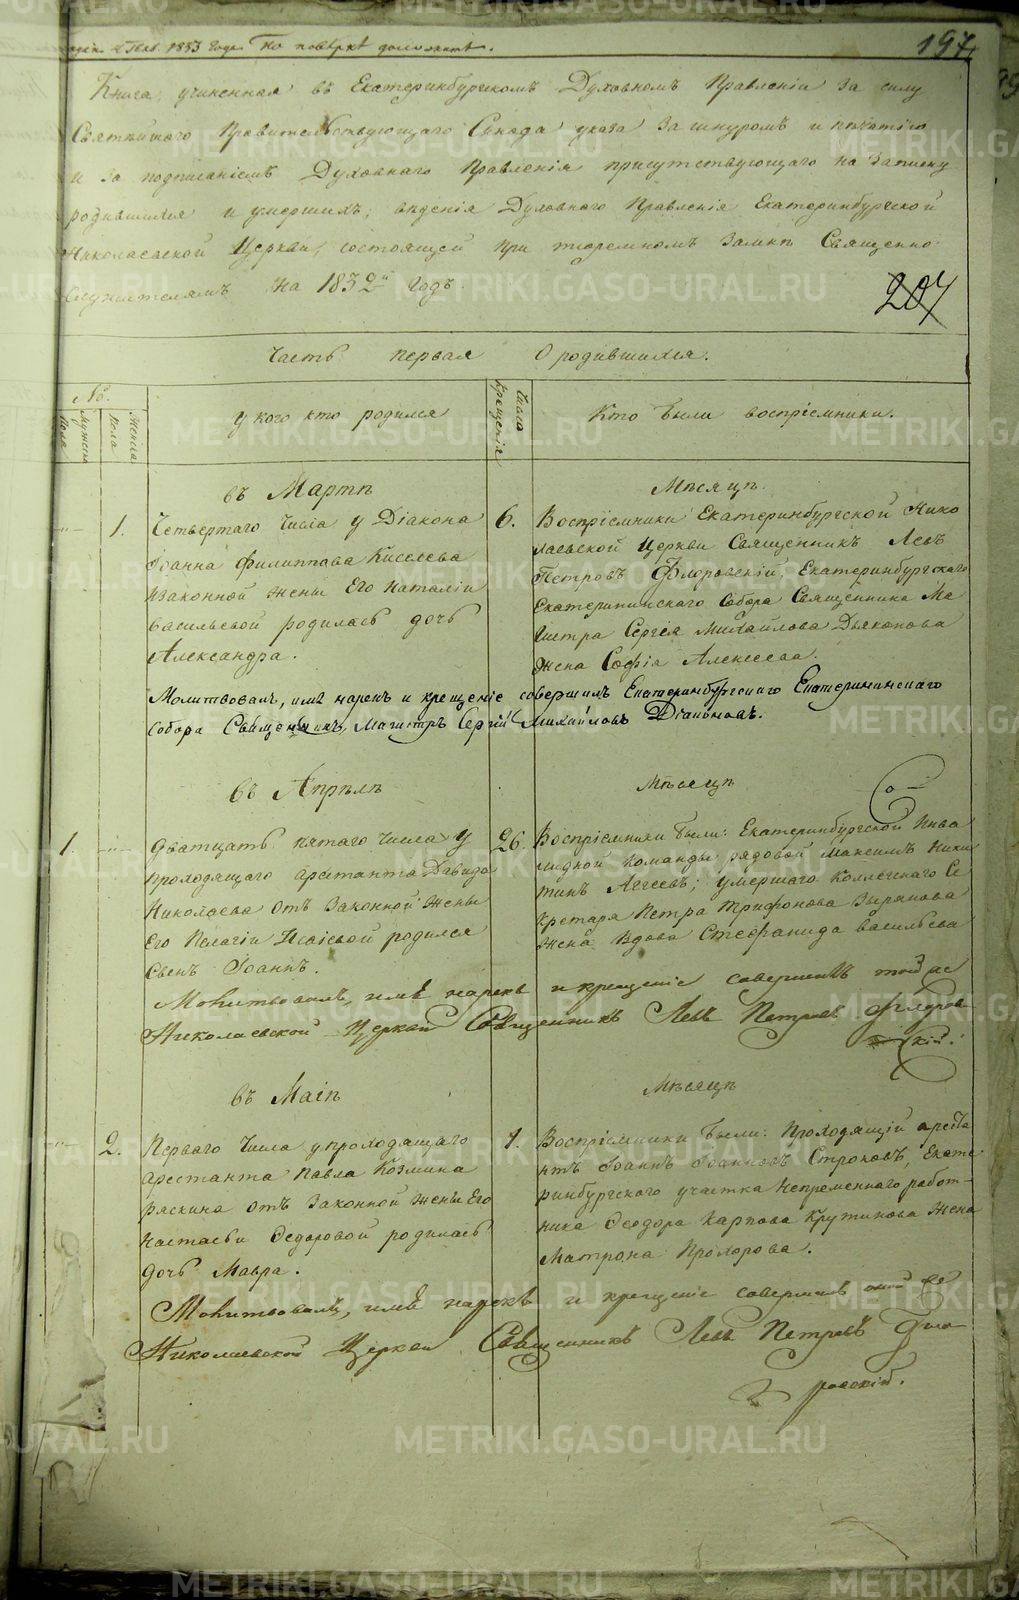 2 Генв. 1833 года. По поверкѣ доложить.
197
Книга, учиненная въ Екатеринбургскомъ Духовномъ Правленіи за силу
Святѣйшаго Правительствующаго Синода указа за шнуромъ и печатію
и за подписаніемъ Духовнаго Правленія присутствующаго на записку
родившихся и умершихъ, вѣденія Духовнаго Правленія Екатеринбургской
Николаевской Церкви, состоящей при тюремномъ замкѣ Священно-
служителямъ на 1832й годъ.
207
Часть первая О родившихся.
№.
Мужска пола
Женска пола
У кого кто родился
Числа крещенія
Кто были воспріемники.
въ Мартѣ Мѣсяцѣ.
1.
Четвертаго числа у Діакона
Іоанна Филиппова Киселева
изаконной жены Его Наталіи
Васильевой родилась дочь
Александра.
6.
Воспріемники Екатеринбургской Нико
лаевской Церкви Священникъ Левъ
Петровъ Флоровскій, Екатеринбургскаго
Екатерининскаго Собора Священника Ма
гистра Сергія Михайлова Дьяконова
жена Софія Алексеева.
Молитвовалъ, имѣ нарекъ и крещеніе совершилъ Екатеринбургскаго Екатерининскаго
Собора Священникъ, Магистръ Сергій Михайловъ Діаконовъ.
въ Апрѣлѣ Мѣсяцѣ
1.
Дватцать пятаго числа у
проходящаго арестанта Давида
Николаева отъ законной жены
Его Пелагіи Исаіевой родился
сынъ Іоаннъ.
26.
Воспріемники были: Екатеринбургской Инва
лидной команды рядовой Максимъ Ники
тинъ Агеевъ; умершаго Коллежскаго Се
кретаря Петра Трифонова Зырянова
жена вдова Стефанида Васильева
Молитвовалъ, имѣ нарекъ и крещеніе совершилъ той же
Николаевской Церкви Священникъ Левъ Петровъ Флоров
скій.
въ Маіѣ Мѣсяцѣ
2.
Перваго числа упроходящаго
арестанта Павла Козмина
Ряскина отъ законной жены Его
Настасьи Федоровой родилась
дочь Мавра.
1.
Воспріемники были: Проходящій ареста
нтъ Іоаннъ Іоанновъ Строковъ, Екате
ринбургскаго участка непременнаго работ-
ника Феодора Карпова Крутикова жена
Матрона Прохорова.
Молитвовалъ, имѣ нарекъ и крещеніе совершилъ оной же
Николаевской Церкви Священникъ Левъ Петровъ Фло
ровскій.
METRIKI.GASO-URAL.RU